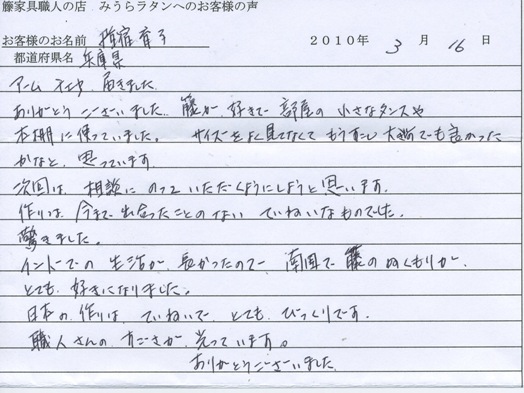 籐家具職人の店　みうらラタンへのお客様の声
お客様のお名前　指宿育子　2010年 3 月 16 日
都道府県名　兵庫県
アームチェア、届きました
ありがとうございました。籐が、好きで部屋の小さなタンスや
本棚に使っていました。サイズをよく見てなくてもう少し大きめでも良かった
かなと、思っています。
次回は、相談にのっていただくようにしようと思います。
作りは今まで出会ったことのない ていねいなものでした。
驚きました。
インドでの生活が長かったので 南国で籐のぬくもりが、
とても好きになりました。
日本の作りは、ていねいで、とてもびっくりです。
職人さんのすごさが、光っています。
ありがとうございました